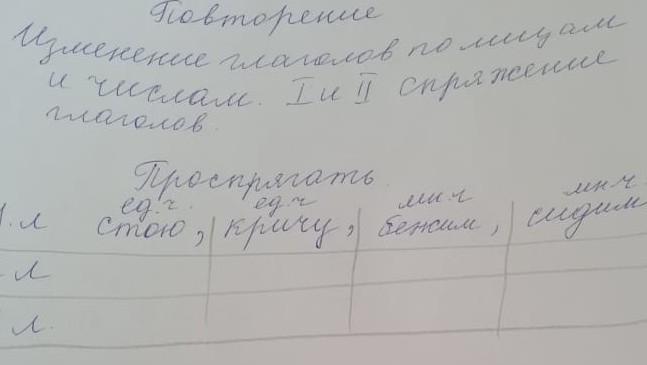 Повторение
Изменение глаголов по лицам
и числам. I и II спряжение
глаголов.
Проспрягать
ед.ч. ед.ч мн.ч мн.ч.
л стою, кричу, бежим, сидим
л
л.